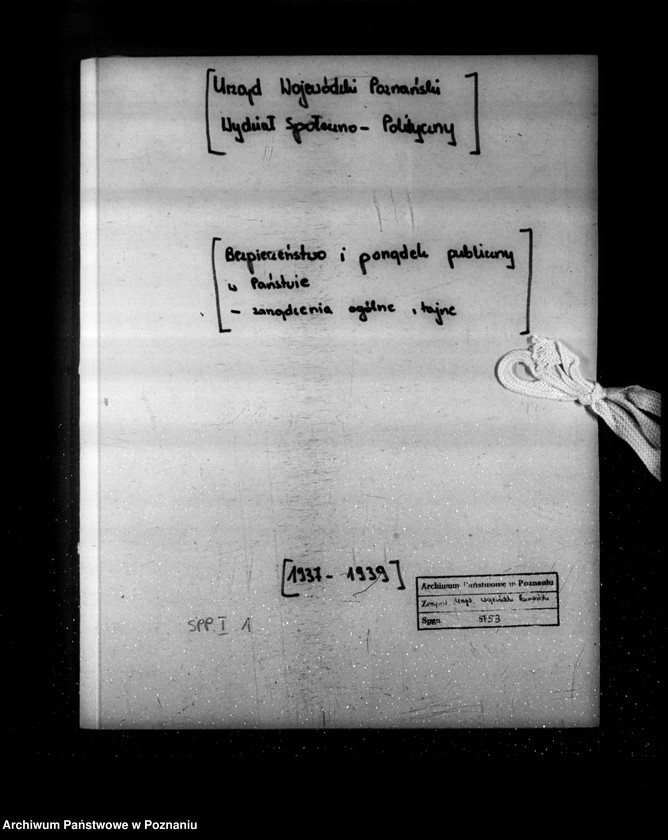 [Urząd Wojewódzki Poznański
Wydział Społeczno - Polityczny]
[Bezpieczeństwo i porządek publiczny
w Państwie
- zarządzenia ogólne, tajne]
[1937 - 1939]
SPP. I 1
Archiwum Państwowe w Poznaniu
Zespół Urząd Wojewódzki Poznański
Sygn. 5753
Archiwum Państwowe w Poznaniu